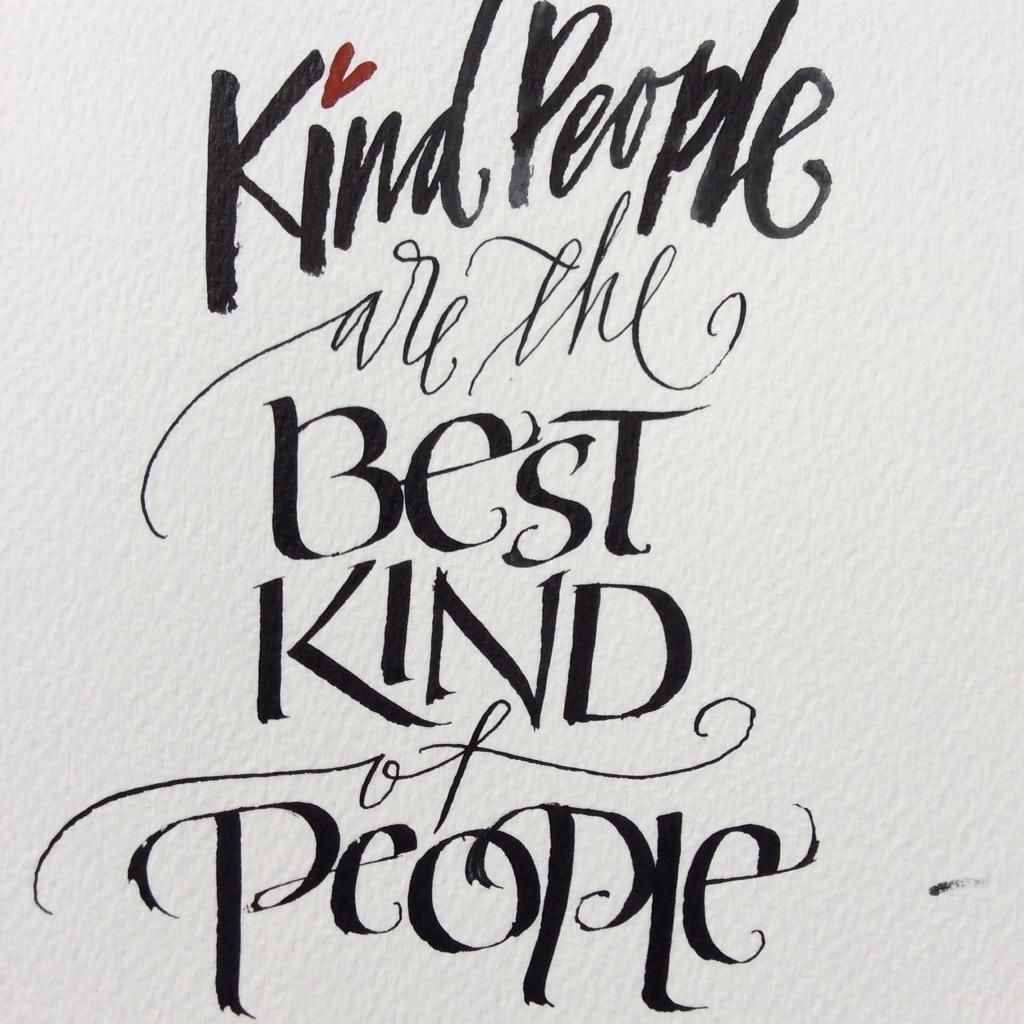 Kind People
are the
BeST
KIND
of
People